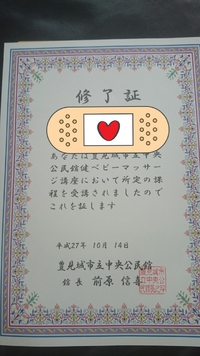 修了証
あなたは豊見城市立中央
公民館健ベビーマッサー
ジ講座において所定の課
程を受講されましたので
これを証します
平成27年 10月 14日
豊見城市立中央公民館
館長 前原 信喜